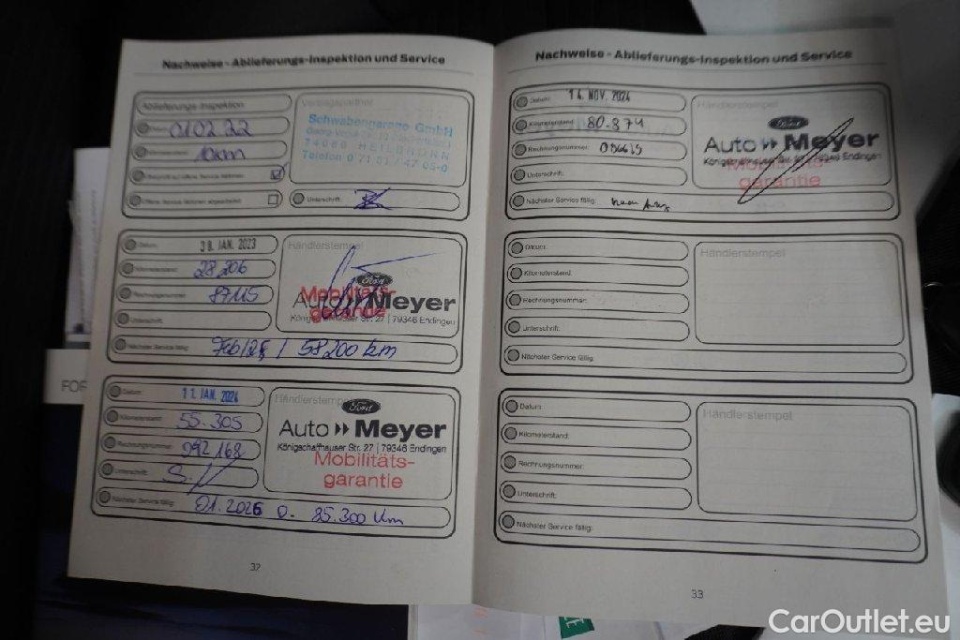 Nachweise - Ablieferungs-Inspektion und Service
Ablieferungs-Inspektion
01 02 22
10km
Vertragspartner
Schwabengarage GmbH
74080 HEILBRONN
Unterschrift:
Datum:
Kilometerstand:
28.206
Rechnungsnummer:
87115
Unterschrift:
Nächster Service fällig:
58200 km
Händlerstempel
Ford
Auto Meyer
Mobilitäts-
garantie
Königschaffhauser Str. 27 | 79346 Endingen
Datum:
11. JAN. 2024
Kilometerstand:
55.305
Rechnungsnummer:
092168
Unterschrift:
Nächster Service fällig:
01.2026 o. 85.300 km
Händlerstempel
Ford
Auto Meyer
Königschaffhauser Str. 27 | 79346 Endingen
Mobilitäts-
garantie
32
Nachweise - Ablieferungs-Inspektion und Service
Datum:
14. NOV. 2024
Kilometerstand:
80.874
Rechnungsnummer:
Unterschrift:
Nächster Service fällig:
Händlerstempel
Ford
Auto Meyer
Königschaffhauser Str. 27 | 79346 Endingen
Mobilitäts-
garantie
Datum:
Kilometerstand:
Rechnungsnummer:
Unterschrift:
Nächster Service fällig:
Händlerstempel
Datum:
Kilometerstand:
Rechnungsnummer:
Unterschrift:
Nächster Service fällig:
Händlerstempel
33
FOR
CarOutlet.eu